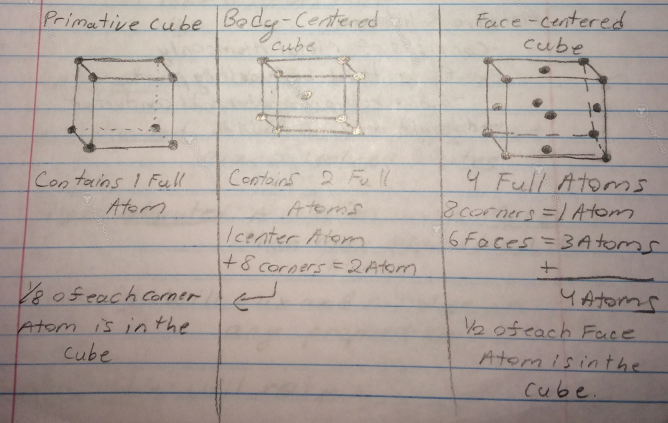 Primative cube
Contains 1 Full
Atom
1/8 of each corner
Atom is in the
cube
Body-Centered
cube
Contains 2 Full
Atoms
1 center Atom
+8 corners = 2 Atom
Face-centered
cube
4 Full Atoms
8 corners = 1 Atom
6 Faces = 3 Atoms
+
4 Atoms
1/2 of each Face
Atom is in the
cube.